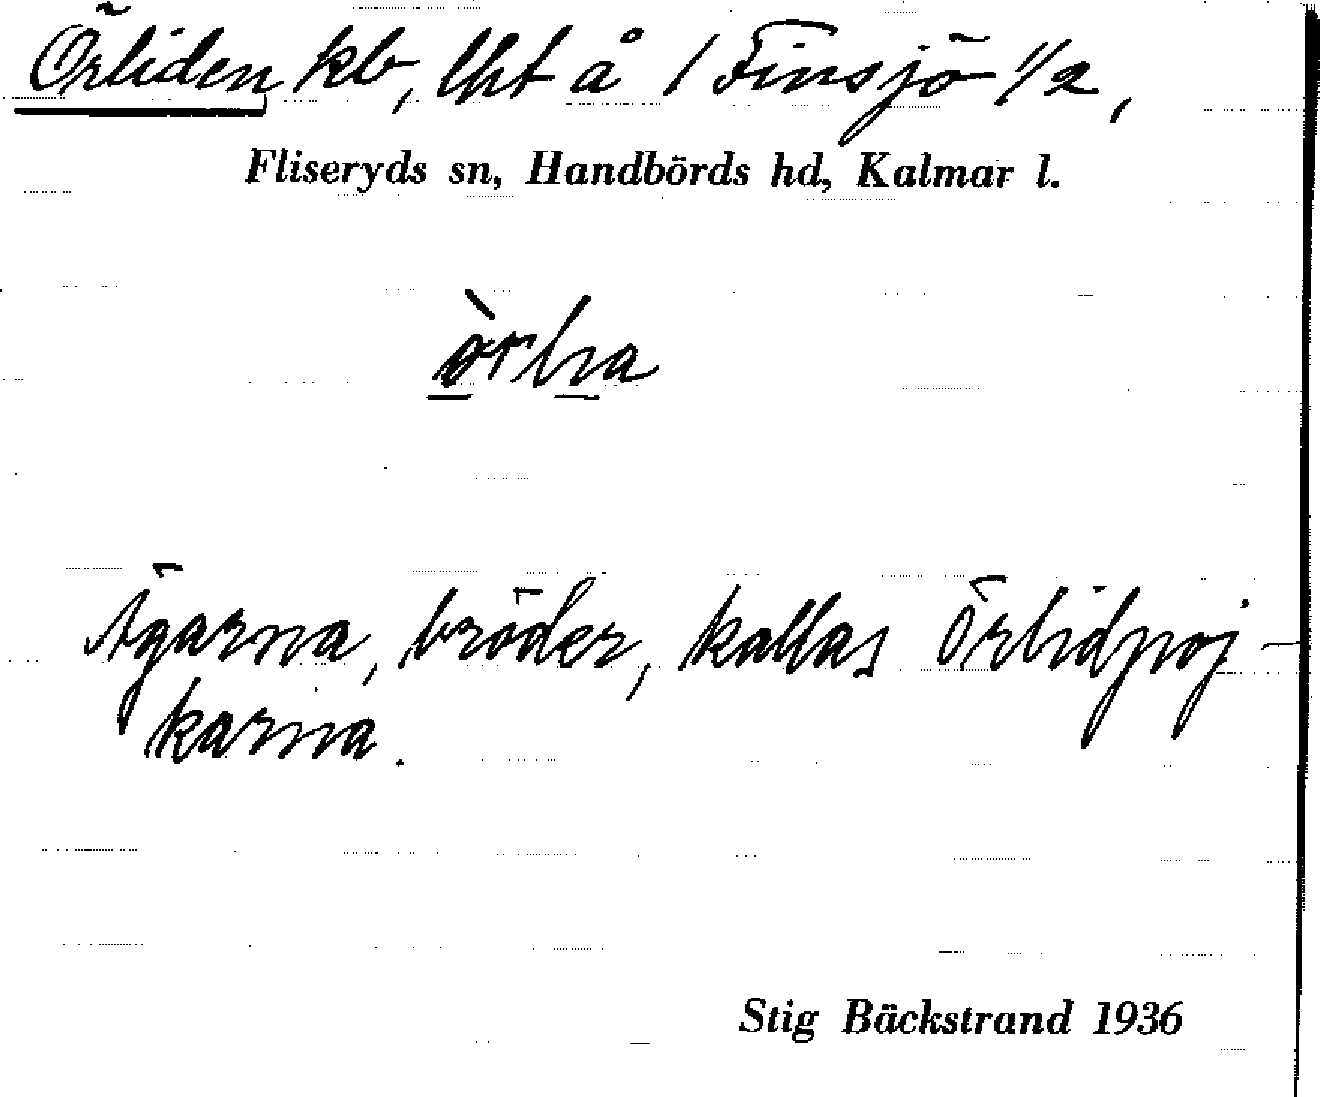 Örliden kb, lht å 1 Finsjö 1/2,
Fliseryds sn, Handbörds hd, Kalmar l.
Ägarna, bröder, kallas Örlidpoj-
karna.
Stig Bäckstrand 1936